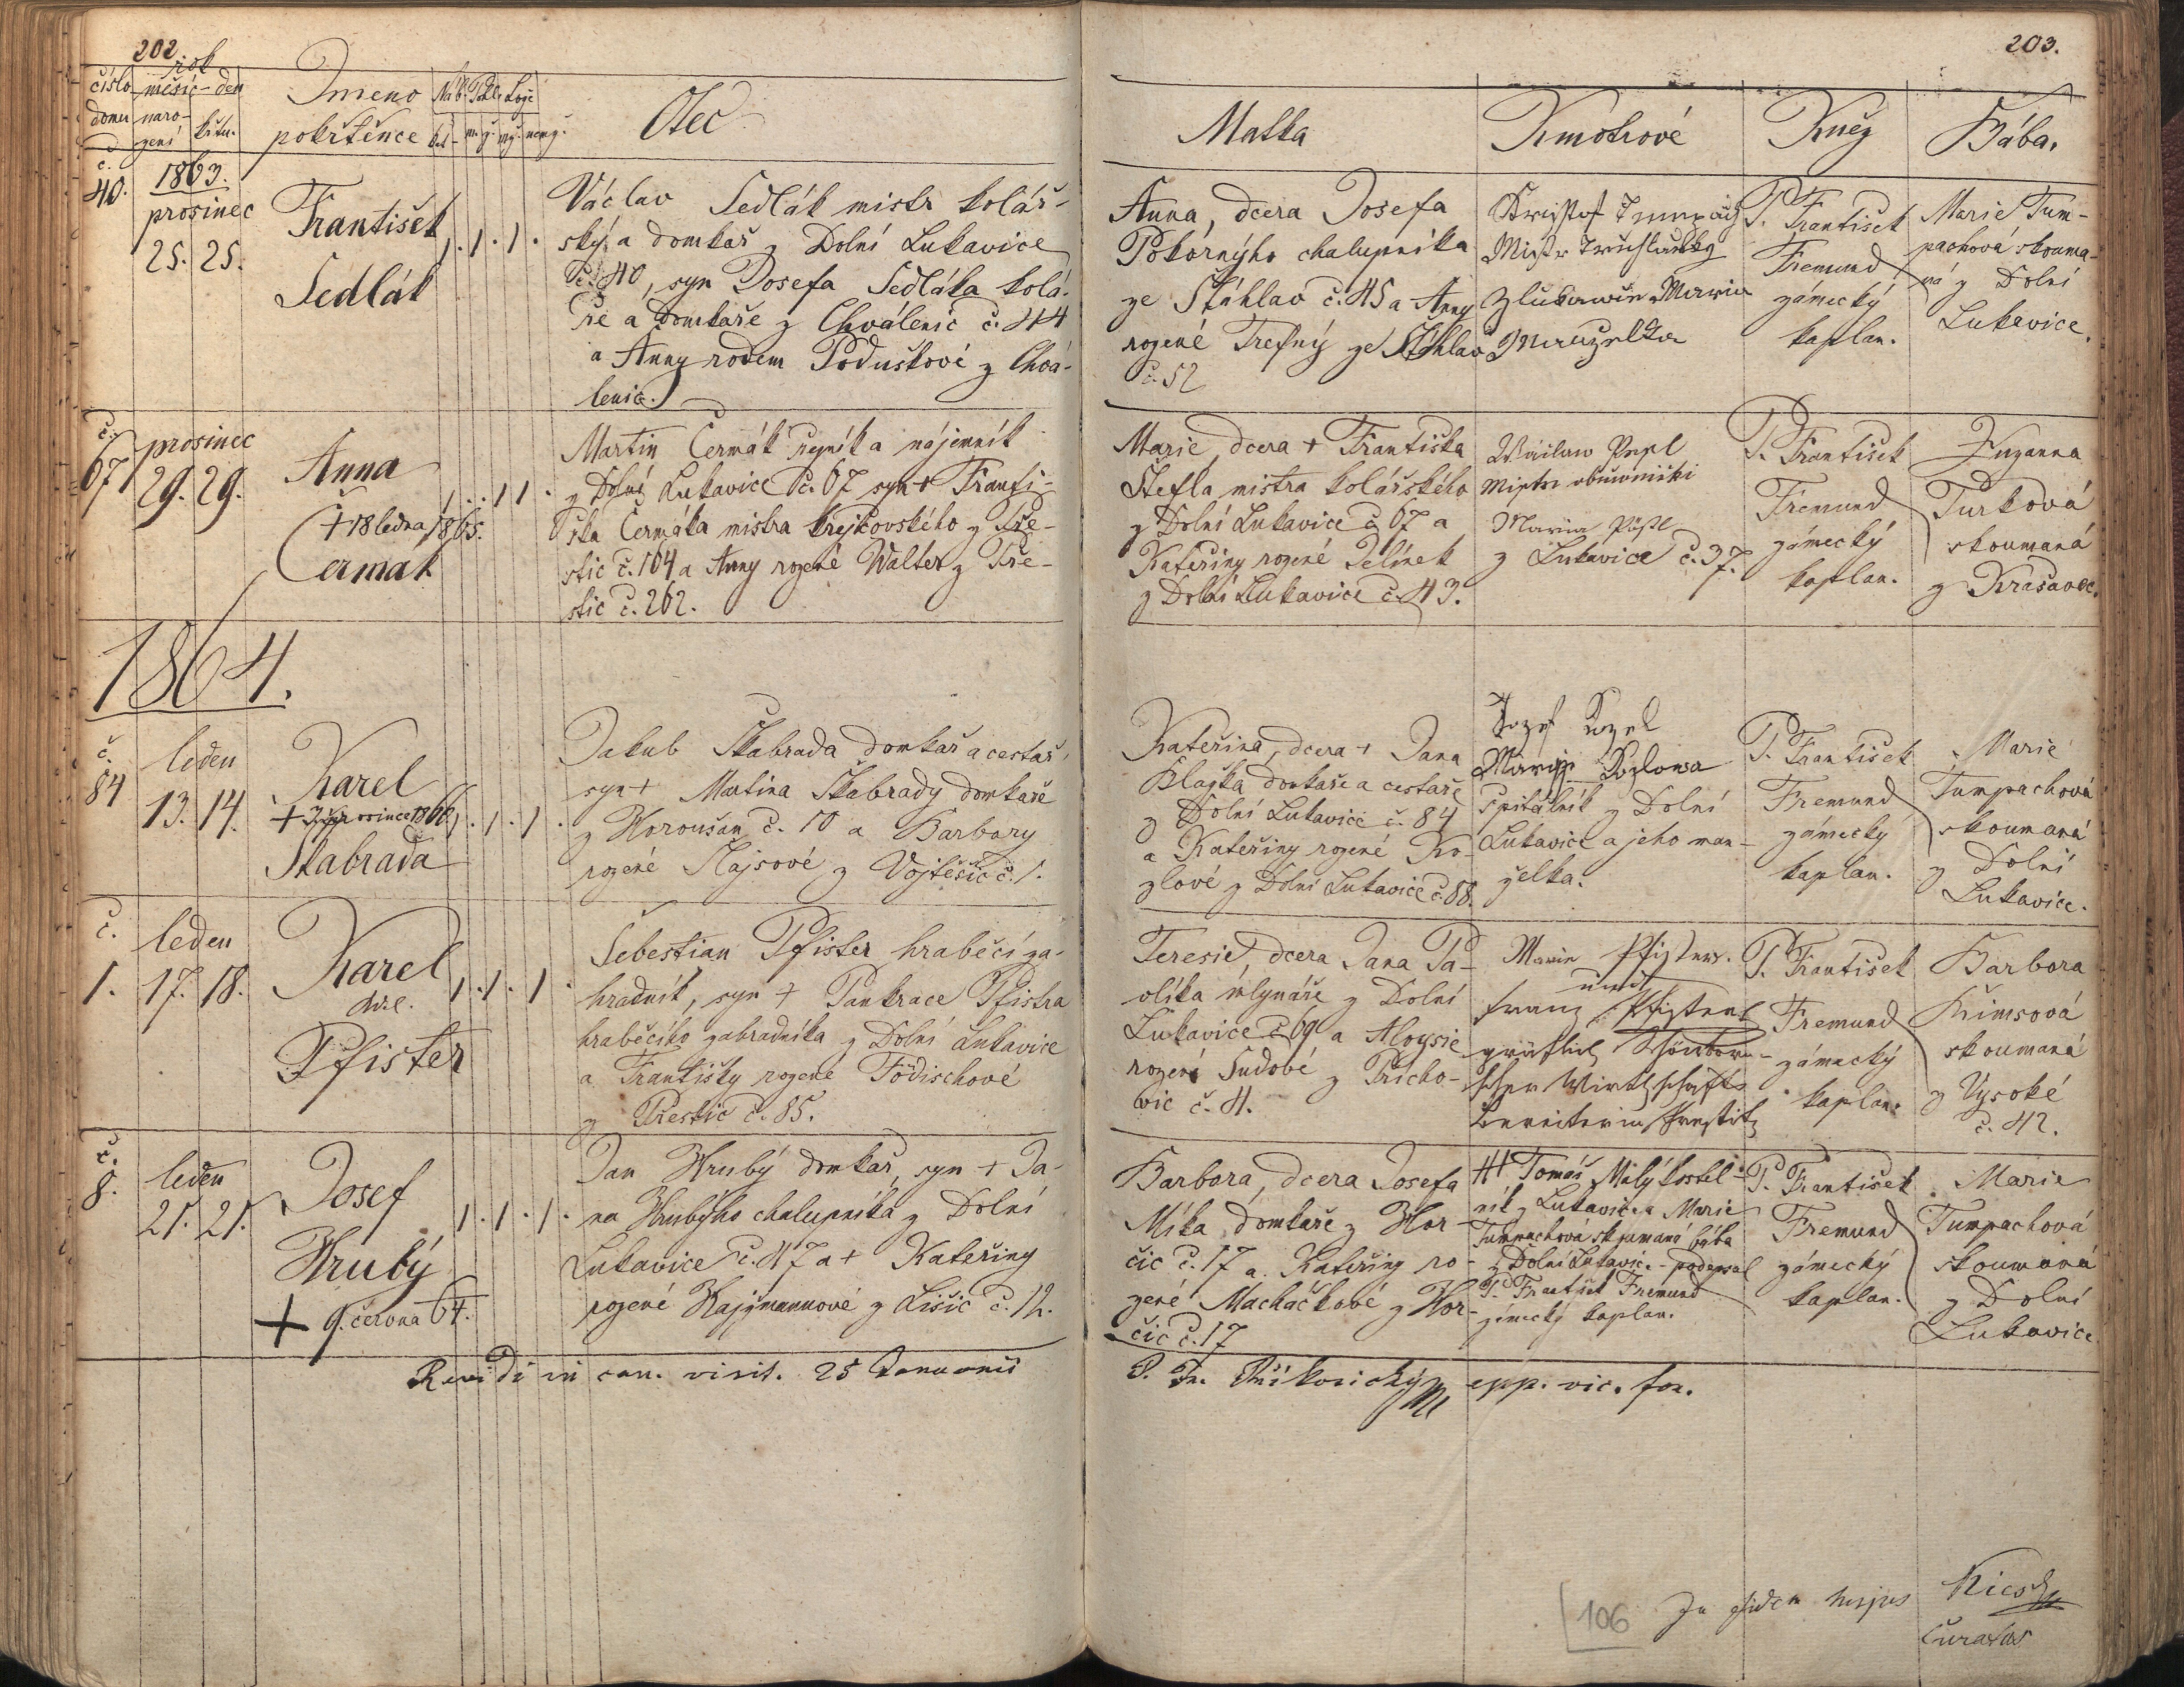 202.
rok
číslo měsíc - den
domu naro-
zení křtu.
Jmeno
pokřtěnce
Náb. Pohl. Lože
Otec
č.
40.
1863.
prosinec
25. 25.
František
Sedlák
1. 1. 1.
Václav Sedlák mistr kolář-
ský a domkař z Dolní Lukavice
č. 40, syn Josefa Sedláka kolá-
ře a domkaře z Chválenic č. 44
a Anny rodem Poduškové z Chvá-
lenic.
č.
67
prosinec
29. 29.
Anna
+ 18 ledna 1865.
Čermák
1 . . 1 1 .
Martin Čermák řezník a nájemník
z Dolní Lukavice č. 67 syn + Franti-
ška Čermáka mistra krejčovského z Pře-
stic č. 104 a Anny rozené Walter z Pře-
stic č. 262.
1864.
č.
84
leden
13. 14.
Karel
+ prosince 1866
Škabrada
1. 1. 1.
Jakub Škabrada domkař a cestař,
syn + Martina Škabrady domkaře
z Horoušan č. 10 a Barbory
rozené Slajsové z Vojtěšic č. 1.
č.
1.
leden
17. 18.
Karel
Pfister
1. 1. 1
Sebestian Pfister hraběcí za-
hradník, syn + Pankrace Pfistra
hraběcího zahradníka z Dolní Lukavice
a Františky rozené Födischové
z Přestic č. 85.
č.
8.
leden
21. 21.
Josef
Hrubý
+ 9. června 64.
1. 1. 1.
Jan Hrubý domkař, syn + Ja-
na Hrubýho chalupníka z Dolní
Lukavice č. 47 a + Kateřiny
rozené Hajzmannové z Lišic č. 12.
Revidi in can. visit. 25 Januarii
203.
Matka
Kmotrové
Kněz
Bába.
Anna, dcera Josefa
Pokórnýho chalupníka
ze Štáhlav č. 45 a Anny
rozené Trefný ze Štáhlav
č. 52
Mistr
z Lukawice Maria
Manzelka
P. František
Fremund
zámecký
kaplan.
Marie Tum-
pachová skouma-
ná z Dolní
Lukavice.
Marie, dcera + Františka
Štefla mistra kolářského
z Dolní Lukavice č 67 a
Kateřiny rozené Jelínek
z Dolní Lukavice č. 43.
Wáclaw
Mistr obuwnicki
Maria
z Lukavice č. 37.
P. František
Fremund
zámecký
kaplan.
Zuzanna
Turková
skoumaná
z Krašovec.
Kateřina, dcera + Jana
Blažka domkaře a cestaře
z Dolní Lukavice č. 84
a Kateřiny rozené Ko-
zlové z Dolní Lukavice č. 88.
Jozef Kozel
Marije Kozlowa
Špitálník z Dolní
Lukavice a jeho man-
želka.
P. František
Fremund
zámecký
kaplan.
Marie
Tumpachová
skoumaná
z Dolní
Lukavice.
Teresie, dcera Jana Pa-
olíka mlynáře z Dolní
Lukavice č 69 a Aloysie
rozené Sudové z Přícho-
vic č. 4.
Marie Pfister.
und
Franz Pfister
gräflich Schönborn-
scher Wirthschafts
Bereiter in Prestitz
P. František
Fremund
zámecký
kaplan.
Barbora
Křimsová
skoumaná
z Vysoké
č. 42.
Barbora, dcera Josefa
Míka, domkaře z Hor-
čic č. 17 a Kateřiny ro-
zené Macháčkové z Hor-
čic č. 17
Tomáš Malý kostel-
ník z Lukavice a Marie
Tumpachová skoumaná bába
z Dolní Lukavice - podepsal
P. František Fremund
zámecký kaplan.
P. František
Fremund
zámecký
kaplan.
Marie
Tumpachová
skoumaná
z Dolní
Lukavice.
P. Fr. Příkosický epp. vic. for.
106
In fidem hujus
Curatus